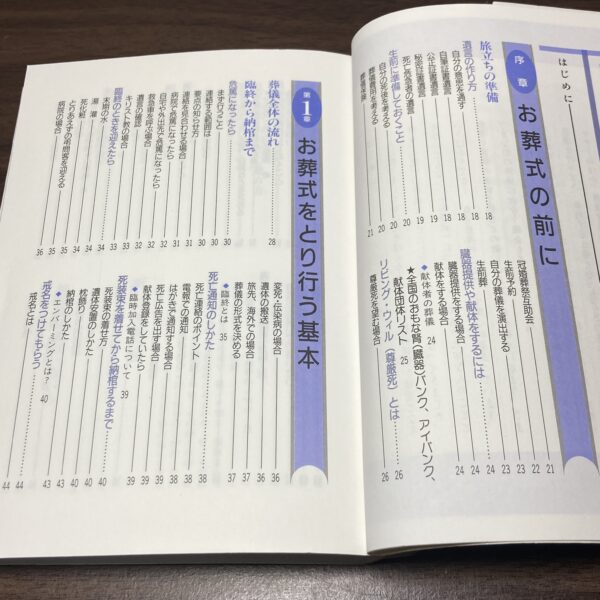 はじめに
序章 お葬式の前に
旅立ちの準備 18
遺言の作り方 18
自分の意思を遺す 18
自筆証書遺言
公正証書遺言
秘密証書遺言
死亡危急者の遺言
生前に準備しておくこと 20
自分の死後を考える 20
葬儀費用を考える 20
葬儀生保 21
冠婚葬祭互助会 21
生前予約 22
自分の葬儀を演出する 23
生前葬 23
臓器提供や献体をするには 24
臓器提供をする場合 24
献体をする場合 24
◆献体者の葬儀 24
★全国のおもな腎(臓器)バンク、アイバンク、
献体団体リスト 25
リビング・ウィル(尊厳死)とは 26
尊厳死を望む場合 26
第1章 お葬式をとり行う基本
葬儀全体の流れ 28
臨終から納棺まで 30
危篤になったら 30
まず行うこと 30
連絡する範囲は
要点の知らせ方
連絡を見合わせる場合
病院で危篤になったら
自宅や外出先で危篤になったら
救急車を呼ぶ場合
遺言の確認
キリスト教の場合
臨終のときを迎えたら 33
末期の水 33
湯灌 34
死化粧 34
とりあえずの弔問客を迎える 35
病院の場合 36
変死・伝染病の場合 36
遺体の搬送 36
旅先、海外での場合 37
葬儀の形式を決める 37
◆臨終とは 35
死亡通知のしかた 38
死亡連絡のポイント 38
電報での通知 38
はがきで通知する場合 38
死亡広告を出す場合 39
献体登録をしていたら 39
◆臨時加入電話について 39
死装束を着せてから納棺するまで 40
死装束の着せ方 40
遺体安置のしかた 40
枕飾り 43
納棺のしかた 43
◆エンバーミングとは? 40
戒名をつけてもらう 44
戒名とは 44